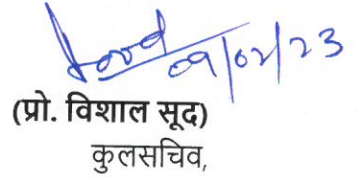 Sood
09/02/23
(प्रो. विशाल सूद)
कुलसचिव,